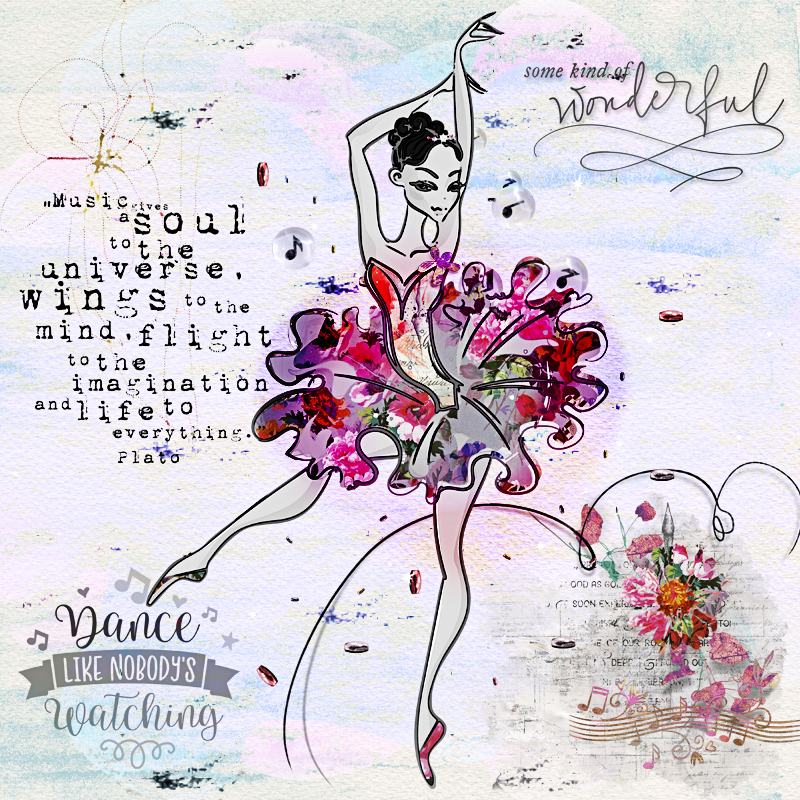 some kind of
wonderful
"Music gives
a soul
to the
universe,
wings to the
mind, flight
to the
imagination
and life to
everything.
Plato
Dance
LIKE NOBODY'S
Watching
OOD AS GOL
SOON EXP
E OF OUR RO